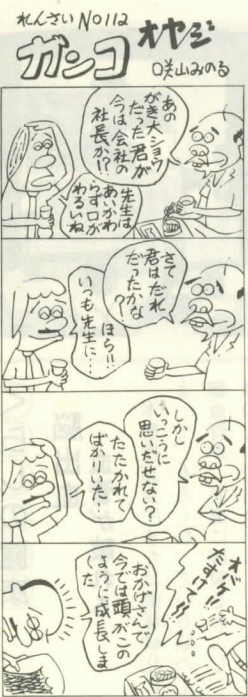 れんさいNO112
ガンコオヤジ
咲山みのる
あの
がき大ショウ
だった君が
今は会社の
社長か!?
先生は
あいかわ
らず口が
わるいね
さて
君はだれ
だったかな
?
ほら!!
いつも先生に…
しかし
いっこうに
思いだせない?
たたかれて
ばかりいた…
オバケー!!
だすけて〜!!
おかげさんで
今では頭がこの
ように成長しま
した